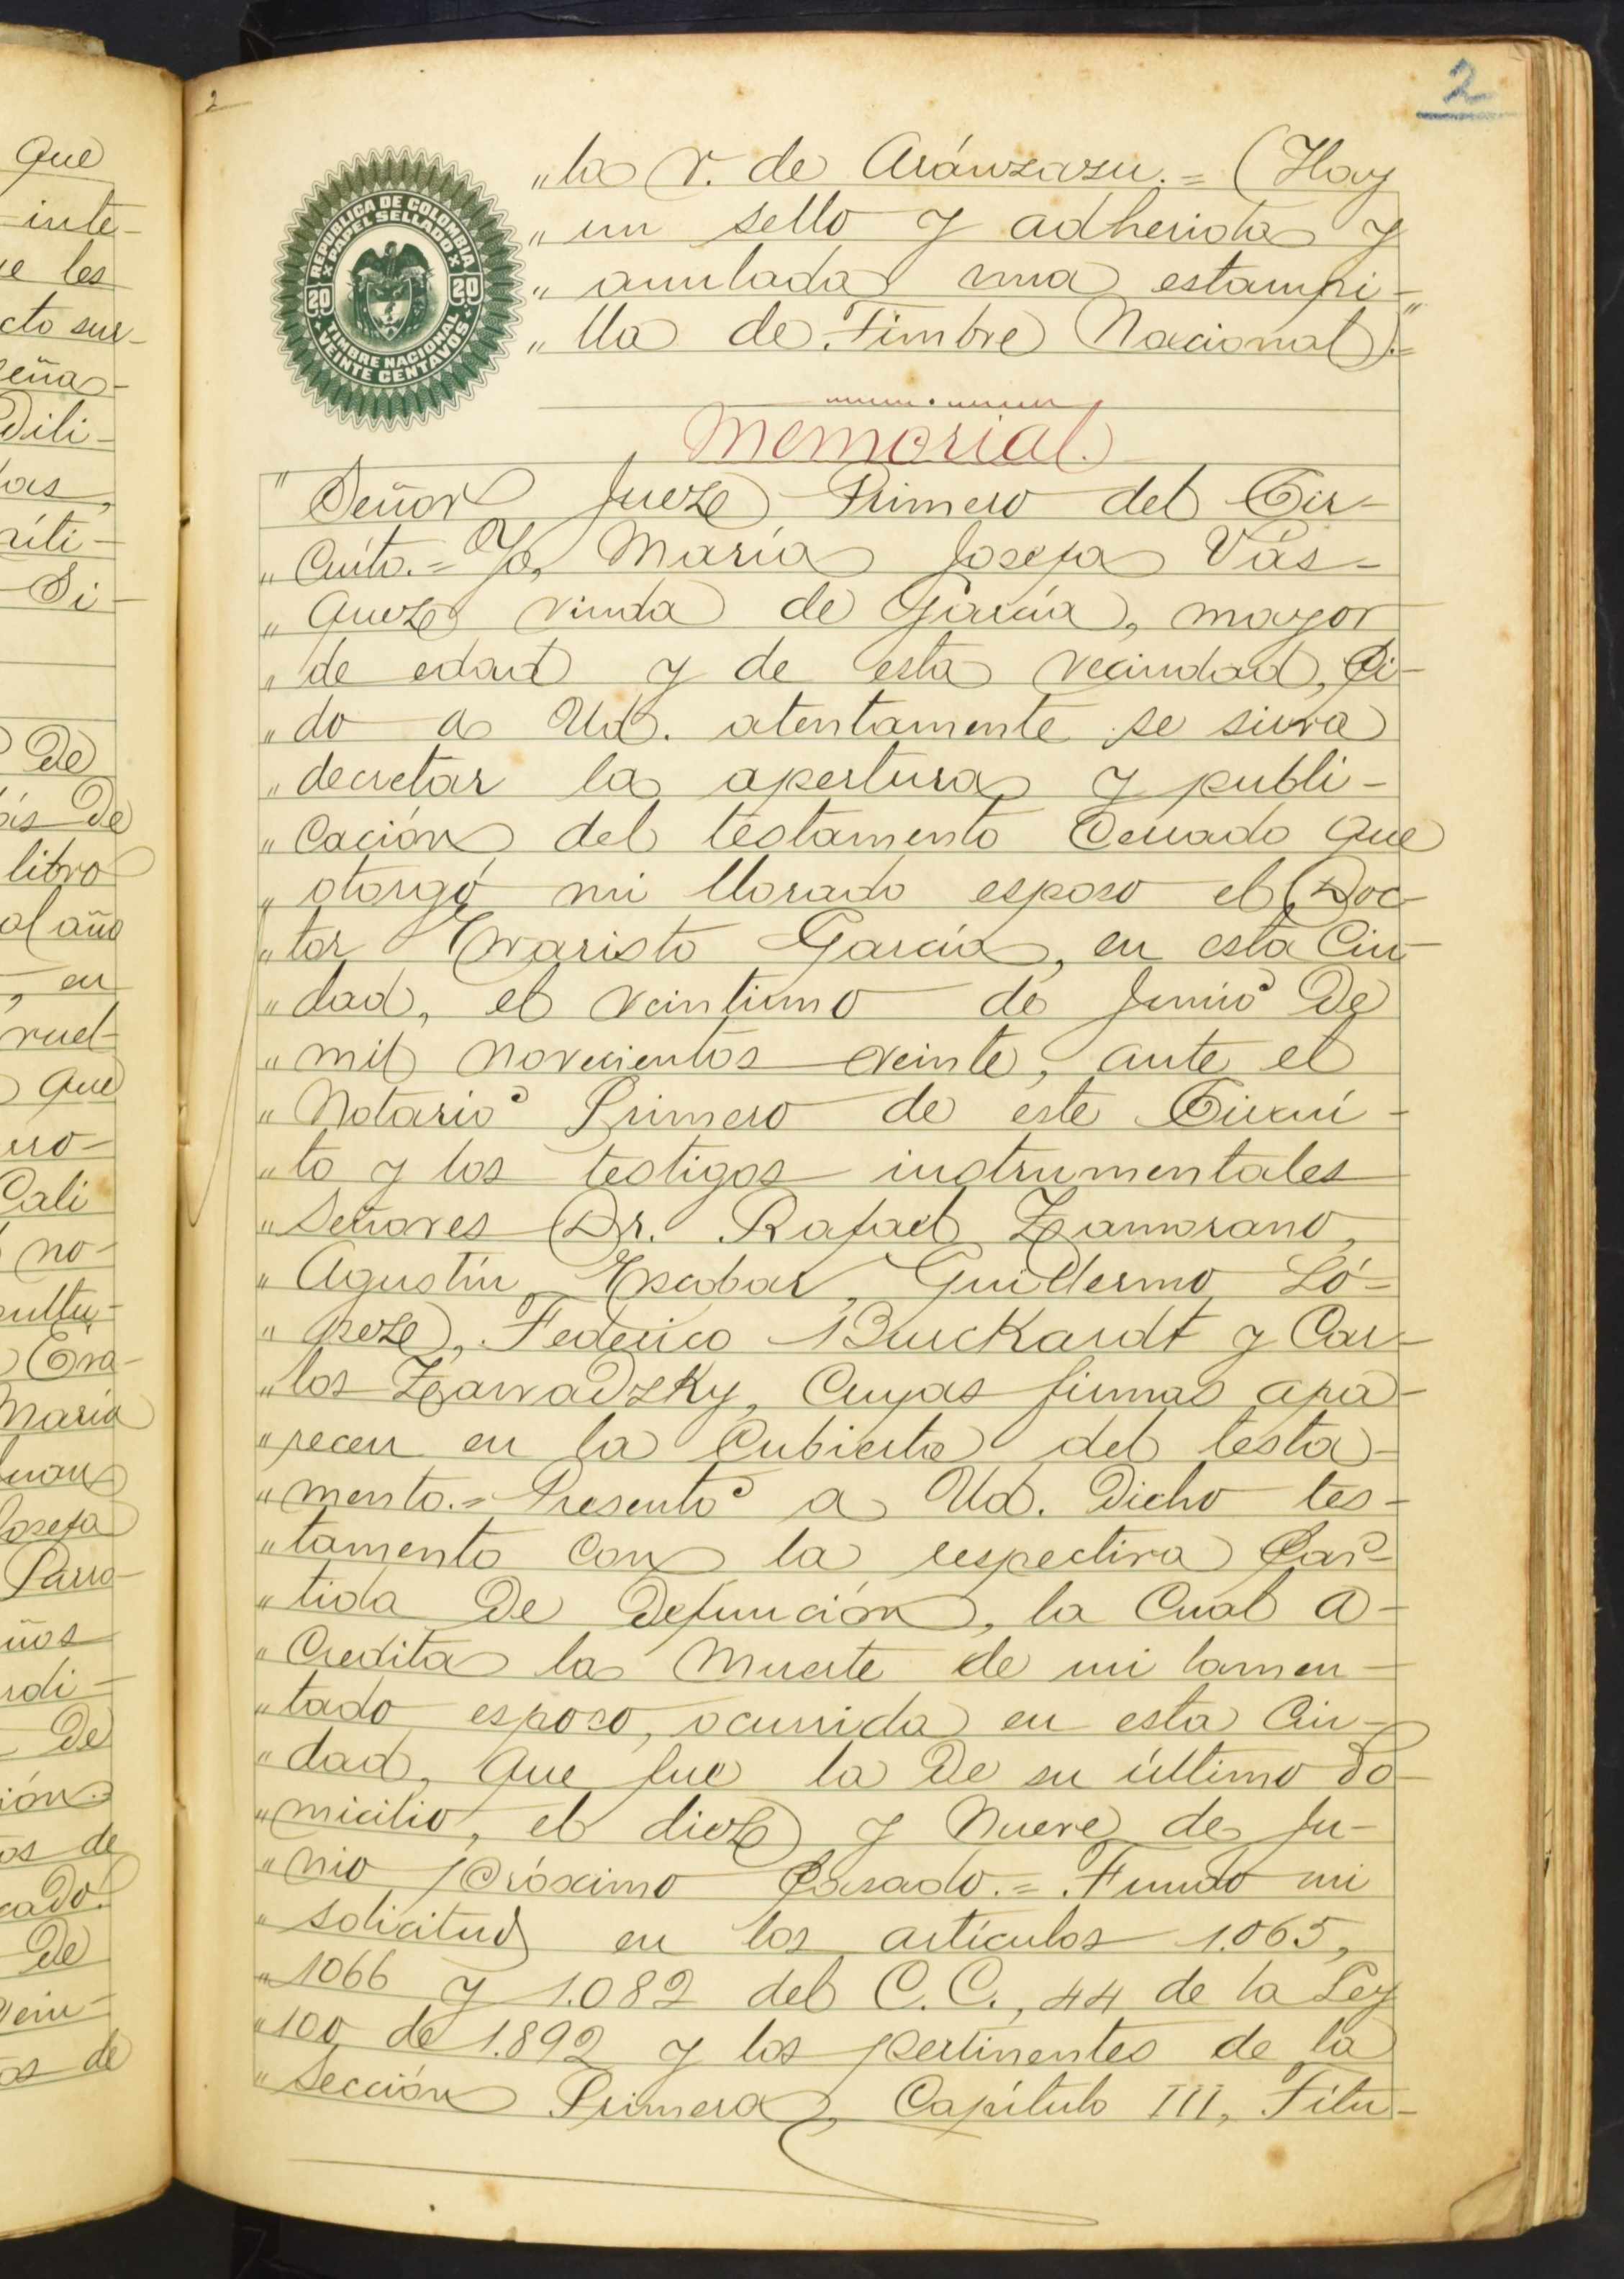 que
inte-
ue les
cto sur-
señas-
Dili-
das,
Si-
De
más De
libro
al año
, en
que
Cali
no-
Eva-
María
Juan
Josefa
Parro-
ños
De
ión.
os de
cado.
De
Vein-
os de
2
2
REPUBLICA DE COLOMBIA
PAPEL SELLADO
20 20
TIMBRE NACIONAL
VEINTE CENTAVOS
"la v. de Aránzazu.= (Hay
" un sello y adherida y
" anulada una estampi-"
" lla de Timbre Nacional).=
Memorial.
" Señor Juez Primero del Cir-
" cuito.= Yo, María Josefa Vás-
" quez viuda de García, mayor
" de edad y de esta vecindad, pi-
" do a Ud. atentamente se sirva
" decretar la apertura y publi-
" cación del testamento cerrado que
" otorgó mi llorado esposo el Doc-
" tor Evaristo García, en esta Ciu-
" dad, el veintiuno de Junio De
" mil novecientos veinte, ante el
" Notario Primero de este Circui-
" to y los testigos instrumentales
" Señores Dr. Rafael Zamorano,
" Agustín Escobar, Guillermo Ló-
" pez, Federico Burckardt y Car-
" los Zawadzky, cuyas firmas apa-
" recen en la cubierta del testa-
" mento.= Presento a Ud. Dicho tes-
" tamento con la respectiva par-
" tida De Defunción, la cual a-
" credita la muerte de mi lamen-
" tado esposo, ocurrida en esta Ciu-
" dad, que fue la De su último do-
" micilio, el diez y nueve de Ju-
" nio próximo pasado.= Fundo mi
" solicitud en los artículos 1.065,
" 1066 y 1.082 del C.C., 44 de la Ley
" 100 de 1.892 y los pertinentes de la
" Sección Primera, Capítulo III, Títu-